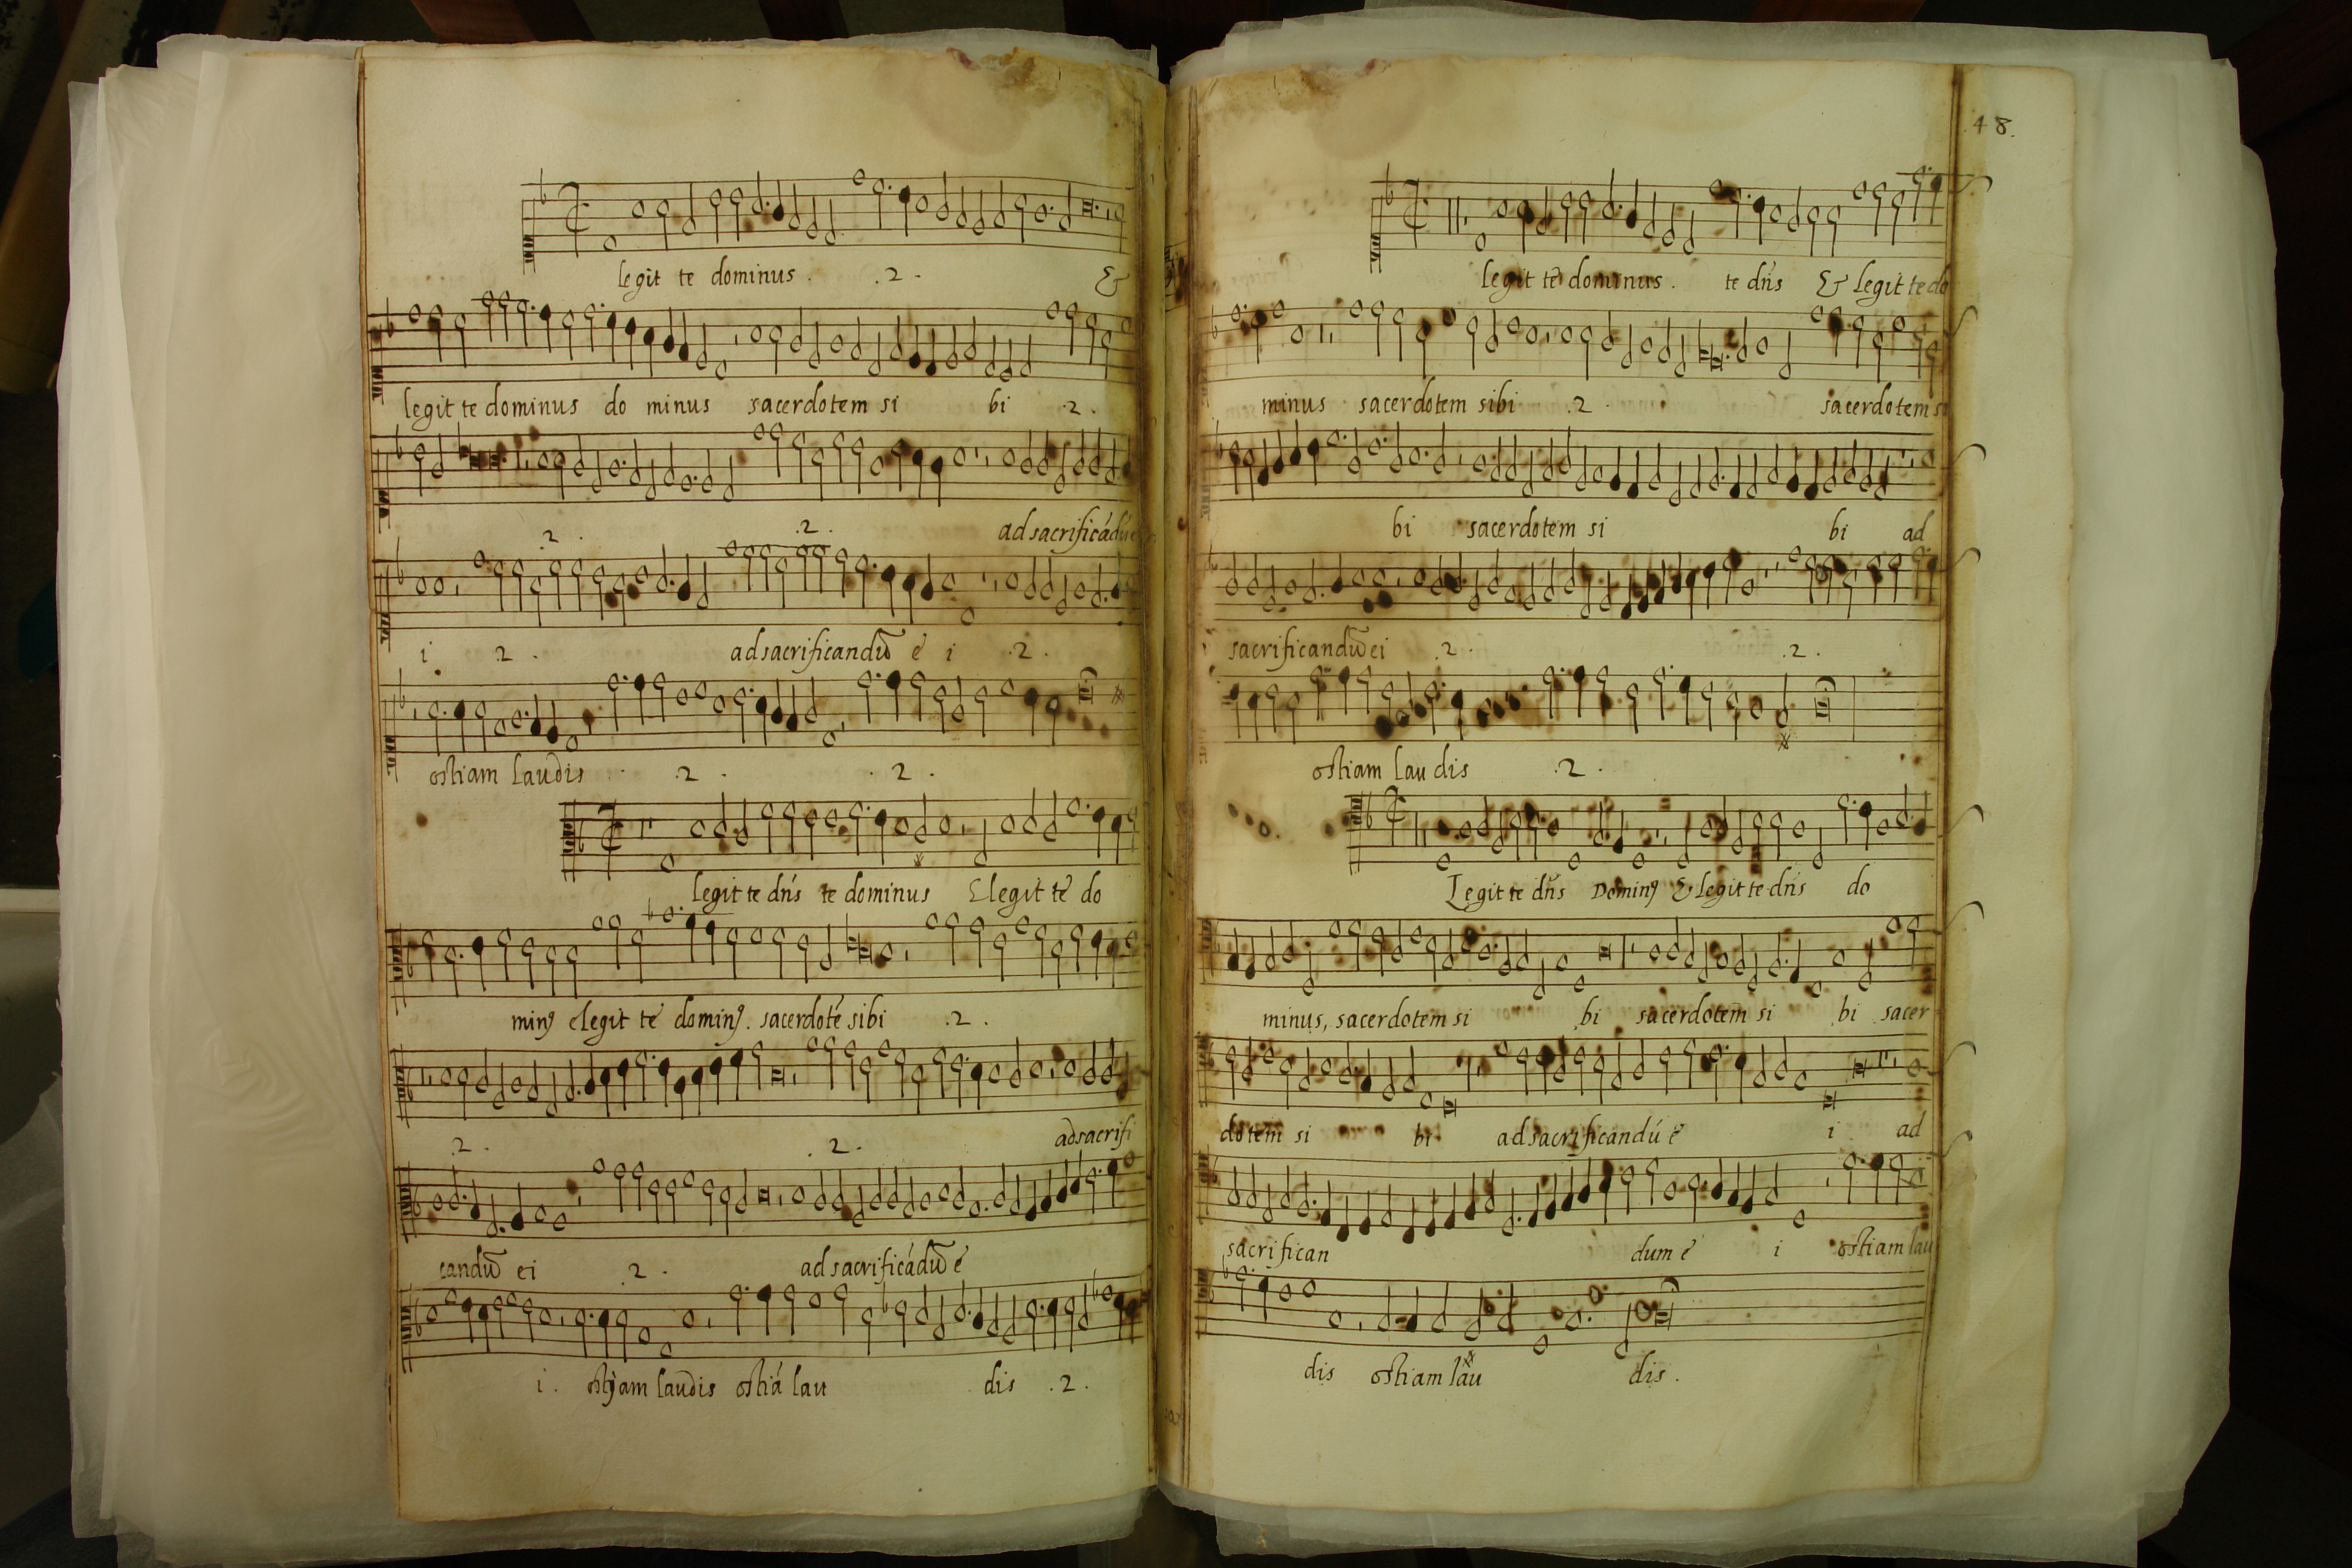 legit te dominus . .2. &
legit te dominus do minus sacerdotem si bi .2.
.2. .2. ad sacrificádú
i .2. ad sacrificandū e i .2.
ostiam laudis .2. .2.
legit te dñs te dominus Elegit te do
minꝰ elegit te dominꝰ. sacerdoté sibi .2.
.2. .2. adsacrifi
candū ei .2. ad sacrificádū e
i. ostiam laudis ostiá lau dis .2.
48.
legit te dominus . te dñs & legit te do
minus sacerdotem sibi .2. sacerdotem si
bi sacerdotem si bi ad
sacrificandū ei .2. .2.
ostiam lau dis .2.
Legit te dñs Dominꝰ & legit te dñs do
minus, sacerdotem si bi sacerdotem si bi sacer
dotem si bi ad sacrificandú e i ad
sacrifican dum e i ostiam lau
dis ostiam lau dis .